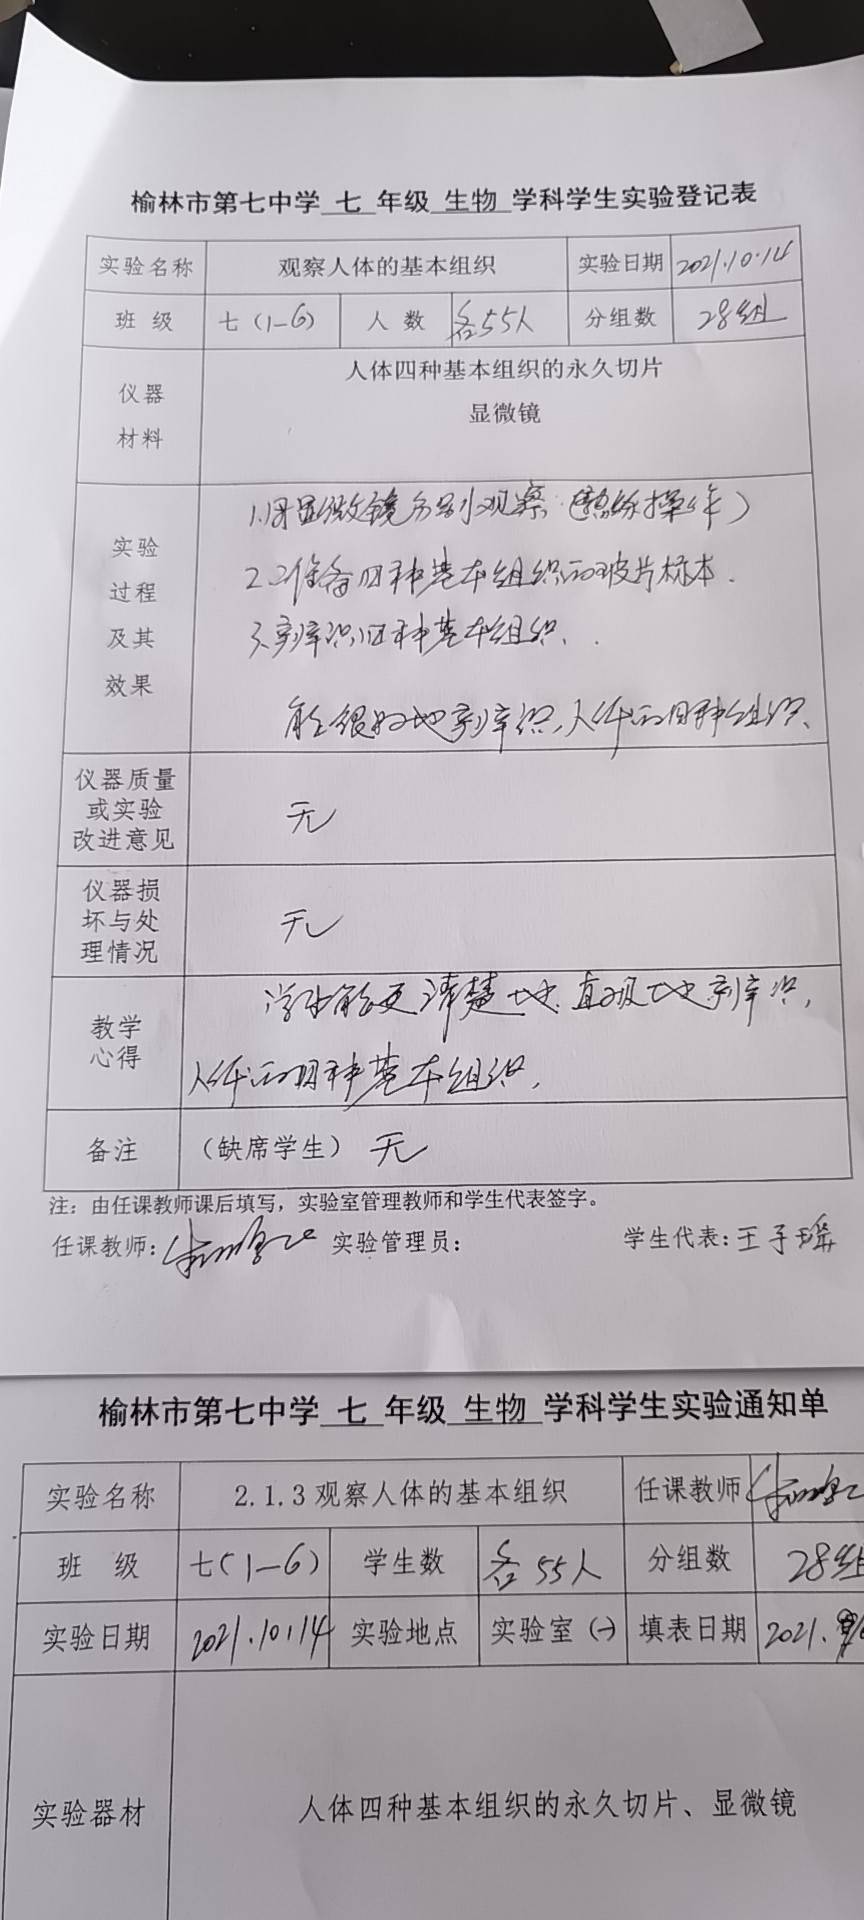 榆林市第七中学 七 年级 生物 学科学生实验登记表
实验名称 观察人体的基本组织 实验日期 2021.10.14
班 级 七(1-6) 人 数 各55人 分组数 28组
仪器材料 人体四种基本组织的永久切片
显微镜
实验过程及其效果
1.用显微镜分别观察(熟练操作)
2.准备四种基本组织的玻片标本.
3.能辨识四种基本组织.
能很好地辨识人体的四种组织.
仪器质量或实验改进意见 无
仪器损坏与处理情况 无
教学心得 学生能更清楚地.直观地辨识,
人体的四种基本组织.
备注 (缺席学生) 无
注:由任课教师课后填写,实验室管理教师和学生代表签字。
任课教师: 实验管理员: 学生代表:王子瑶
榆林市第七中学 七 年级 生物 学科学生实验通知单
实验名称 2.1.3 观察人体的基本组织 任课教师
班 级 七(1-6) 学生数 各55人 分组数 28组
实验日期 2021.10.14 实验地点 实验室(一) 填表日期 2021.
实验器材 人体四种基本组织的永久切片、显微镜